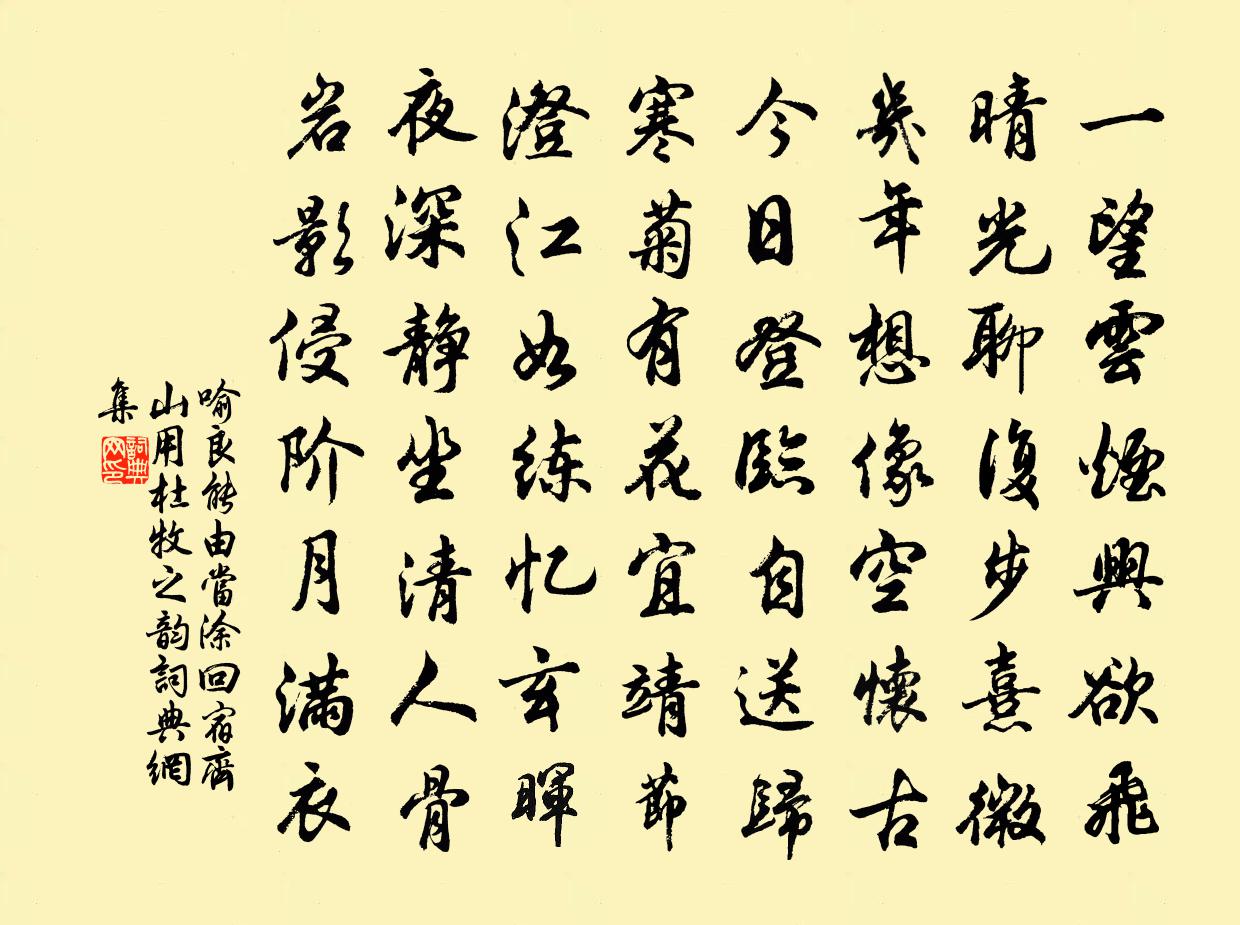 一望雲煙興欲飛
晴光聊復步熹微
幾年想像空懷古
今日登臨自送歸
寒菊有花宜靖節
澄江如练忆玄暉
夜深静坐清人骨
岩影侵阶月满衣
喻良能由當涂回宿齊
山用杜牧之韵詞典網
集
詞典
网印